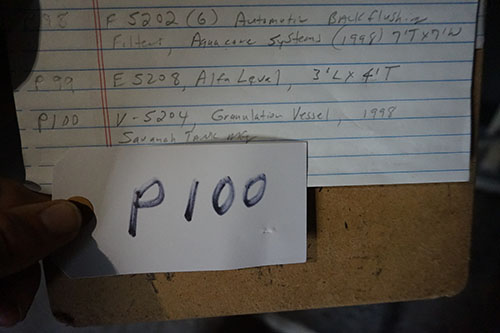 P98 F 5202 (6) Automatic Backflushing
Filters, Aquacare Systems (1998) 7'T x 7'W
P99 E 5208, Alfa Laval, 3'L x 4'T
P100 V-5204, Granulation Vessel, 1998
Savanah Tank Mfg
P100